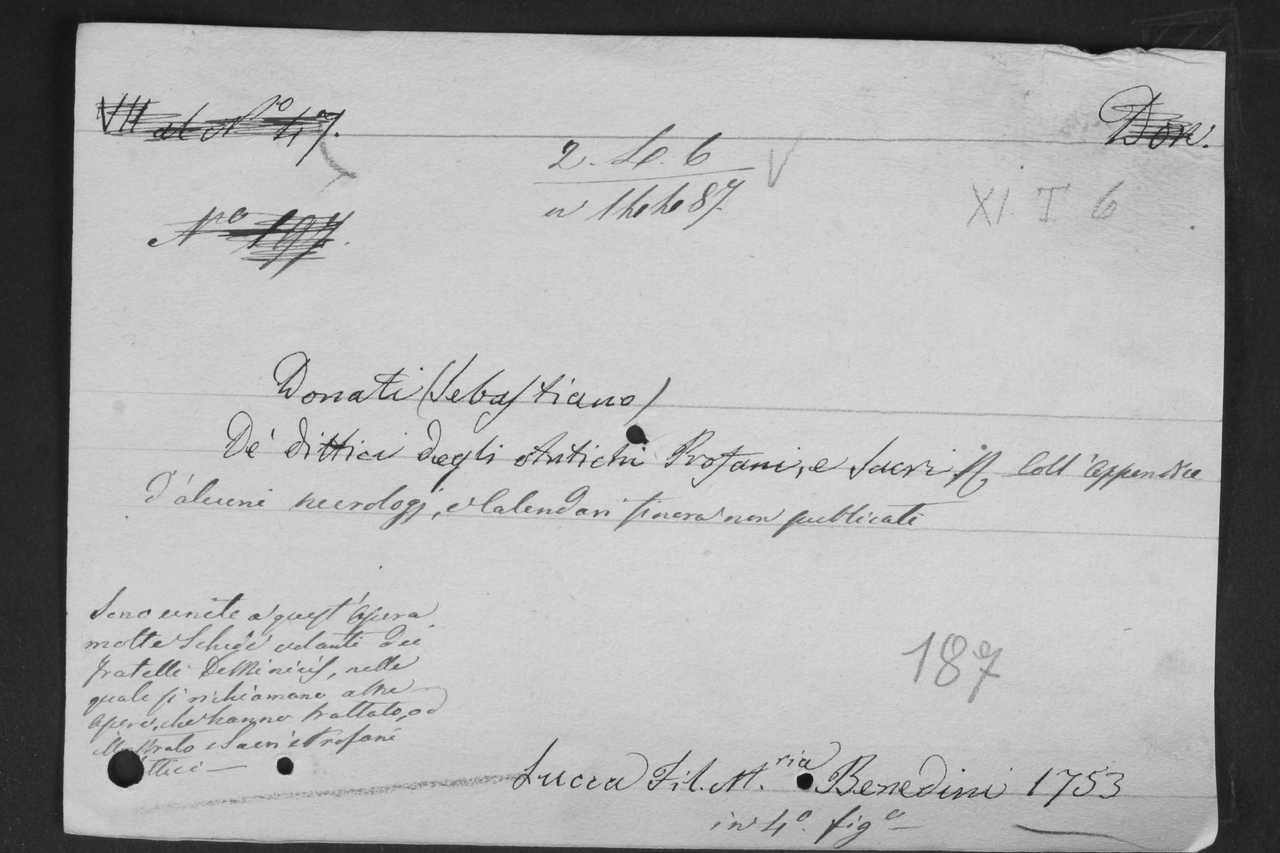 VII al N.º 47.
Don.
2. L. 6
in 14487
XI T 6
Nº 197.
Donati (Sebastiano)
De' dittici degli Antichi Profani, e Sacri Coll' appendice
d'alcuni necrologj, e Calendari finora non publicati
Sono unite a quest' Opera
molte Schede volanti dei
fratelli DeMinicis, nelle
quale si richiamano altre
Opere, che hanno trattato, od
illustrato i Sacri e Profani
dittici —
187
Lucca Fil. M.ria Benedini 1753
in 4º figº